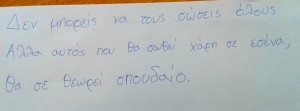 Δεν μπορείς να τους σώσεις όλους.
Αλλα αυτός που θα σωθεί χάρη σε εσένα,
θα σε θεωρεί σπουδαίο.